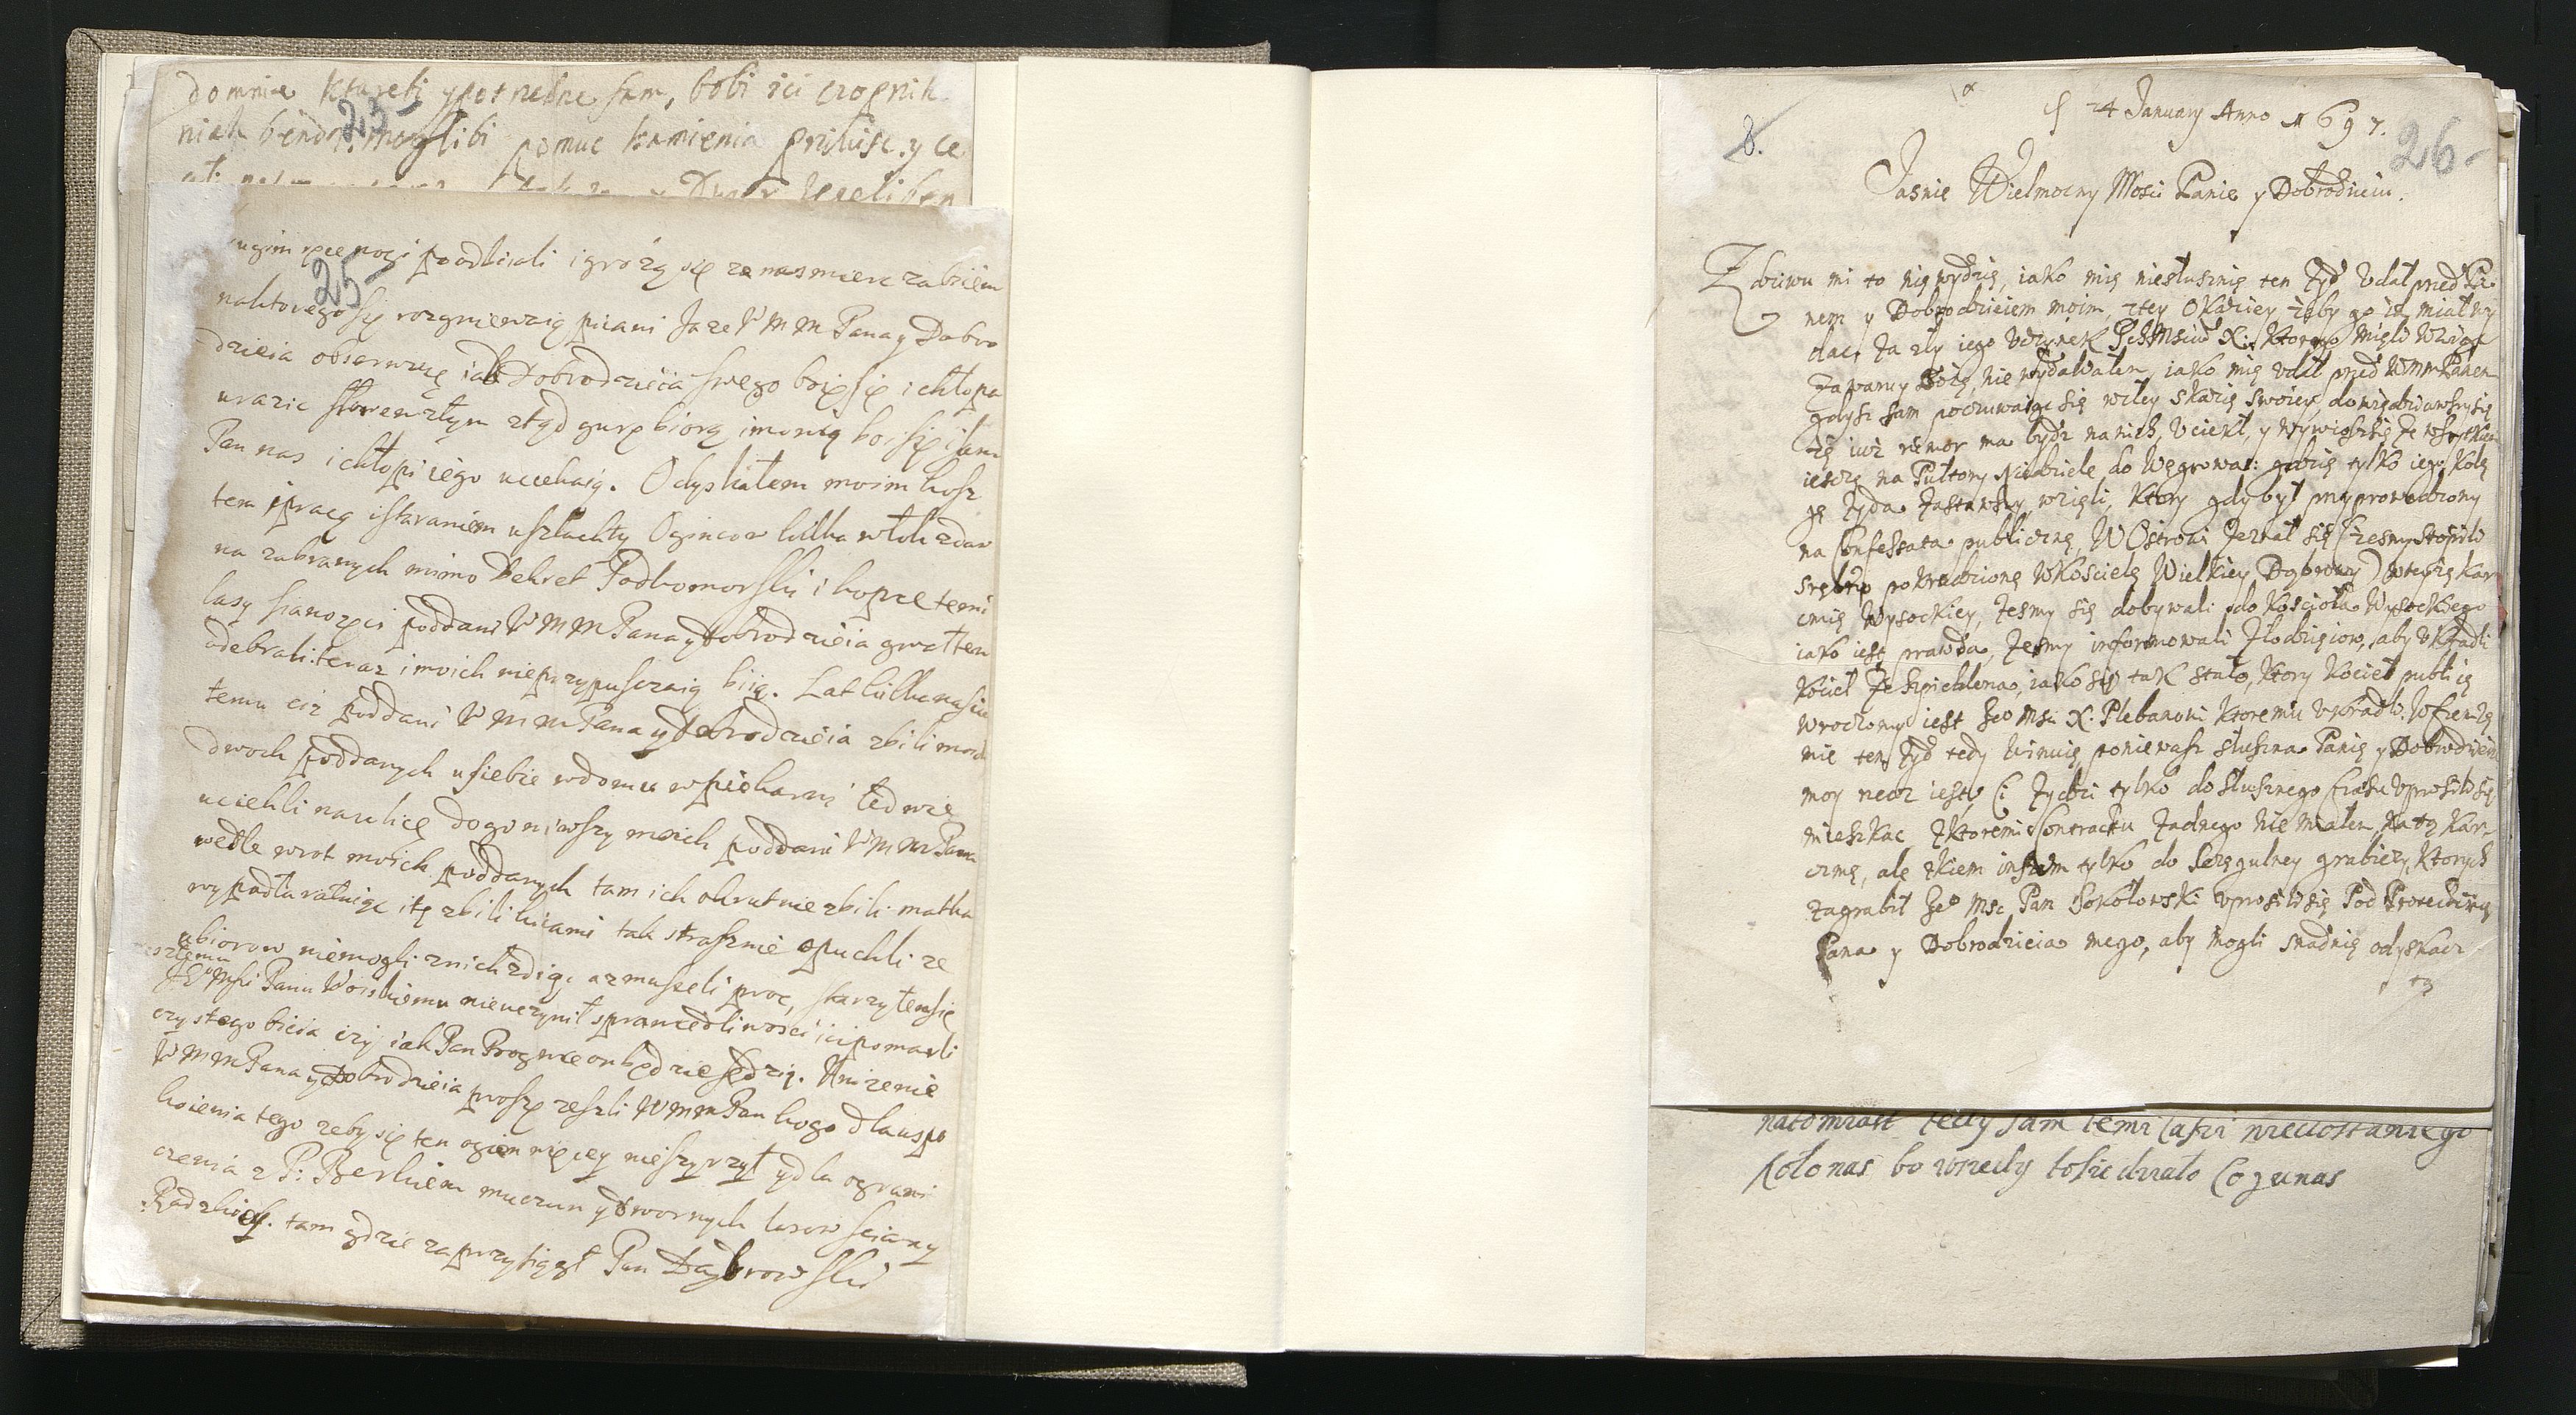 do mnie ktureti ypotrzebne sam, bobi ici czopnik
niek bendo. moglibi pomuc kamienia prziwisc. y ce
25
ugim ręce nogi poodbiiali i grożą się ze nas smierc zabiiem
25
naktorego się rozgniewaią piiani Ja ze W M M Pana y Dobro
dzieia obserwuię iak Dobrodzieia swego boię się i chłopa
urazic słowem złym ztąd gurę biorą i mowią boi się i sam
Pan nas i chłopi iego uciekaią. Odyskałem moim kosz
tem i pracą i staraniem u szlachty Ogincow kilka włok zdaw
na zabranych mimo Dekret Podkomorski i kopce temi
lasy sianozęci poddani W M M Pana y Dobrodzieia gwałtem
odebrali. teraz i moich nie przypuszczaią biią. Lat kilkanascie
temu ciz poddani W M M Pana y Dobrodzieia zbili moich
dwoch poddanych u siebie w domu w piekarni ledwie
uciekli na ulicę dogoniwszy moich poddani W M M Pana
wedle wrot moich poddanych tam ich okrutnie zbili matka
wypadła ratuiąc i tę zbili kiiami tak strasznie opuchli ze
ubiorow niemogli znich zdiąc az musieli proc, skarzyłem się
JEo Msci Panu Woiskiemu nieuczynił sprawiedliwosci i ci pomarli
czy stego bicia czy iak Pan Bog wie on będzie sędzią. Unizenie
W M M Pana y Dobrodzieia proszę zeszli W M M Pan kogo dla uspo
koienia tego zeby się ten ogien więcey nie szyrzył y dla ograni
czenia z P: Berkiem muczun y dwornych lasow sciany
Radzkiey. tam gdzie zaprzysiągł Pan Dąbrowski
8.
24 January Anno 1697.
26
Jasnie Wielmozny Mosci Panie y Dobrodzieiu.
Z dziwu mi to nie wydzie, iako mię niesłusznie ten Zyd udał przed Pa
nem y Dobrodzieiem moim, ztey Okaziey żeby go iż miał wy
dac, Ja zły iego uczynek Jeo Msciu X. Ktorego mięło wziąc
za wary Boże, nie wydawałem, iako mię udał przed WMM Panem
gdysz sam poczuwaiąc się wtey skazie swoiey, dowiedziawszy się
że iuż rumor ma bydz na nich, uciekł, y wywiozszy się ze wszytkiem
ieszcze na Pułtory Niedziele do Węgrowa: gdzie tylko iego kole
gę Zyda zastawszy, wzieli, ktory gdy był przyprowadzony
na Confessata publiczne, W Ostrowi Zeznał się (zesmy stopili
srebro pokradzione w Kosciele Wielkiey Dąbrowy) wteyże kar
czmie Wysockiey, Zesmy się dobywali do Koscioła Wysockiego
iako iest prawda, Zesmy informowali Złodzieiow, aby ukradli
kocieł ze Szpichlerza, iako się tak stało, ktory kocieł publice
wrocony iest Jeo Msci X. Plebanowi ktoremu ukradli.
mię ten Zyd tedy winuie, poniewasz słuszna Panie y Dobrodzieiu
moy rzecz iest, Ci Zydzi tylko do słusznego Czasu uprosili się
mieszkac z ktoremi Contractu Zadnego nie miałem na tę kar
czmę, ale zkiem inszem tylko do szczegulney grabiezy, ktorych
zagrabił Jeo Msc Pan Sokołowski uprosili się Pod Protectią
Pana y Dobrodzieia mego, aby mogli snadnie odyskac
tę
natomiast tedy sam temi Czasÿ niedostaniego
kołonas bo wtedy tosiedziało Co zunas